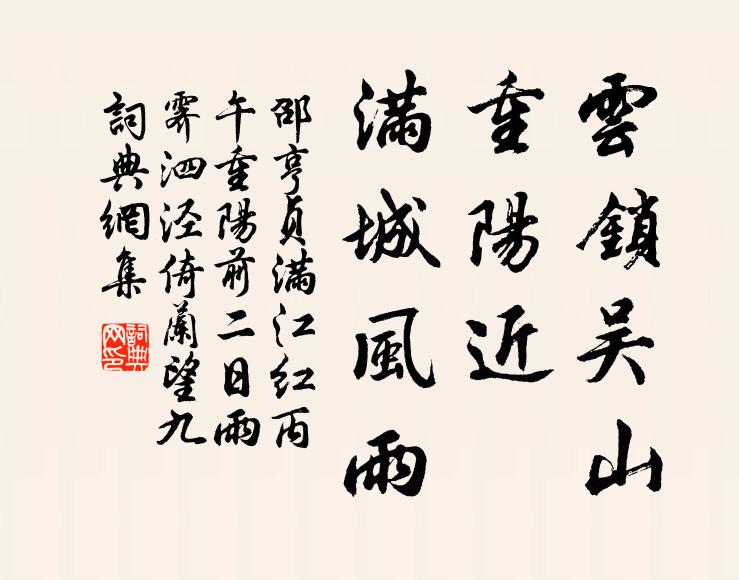 雲鎖吴山
重陽近
滿城風雨
邵亨貞滿江紅丙
午重陽前二日雨
霁泗泾倚蘭望九
詞典網集
詞典網印